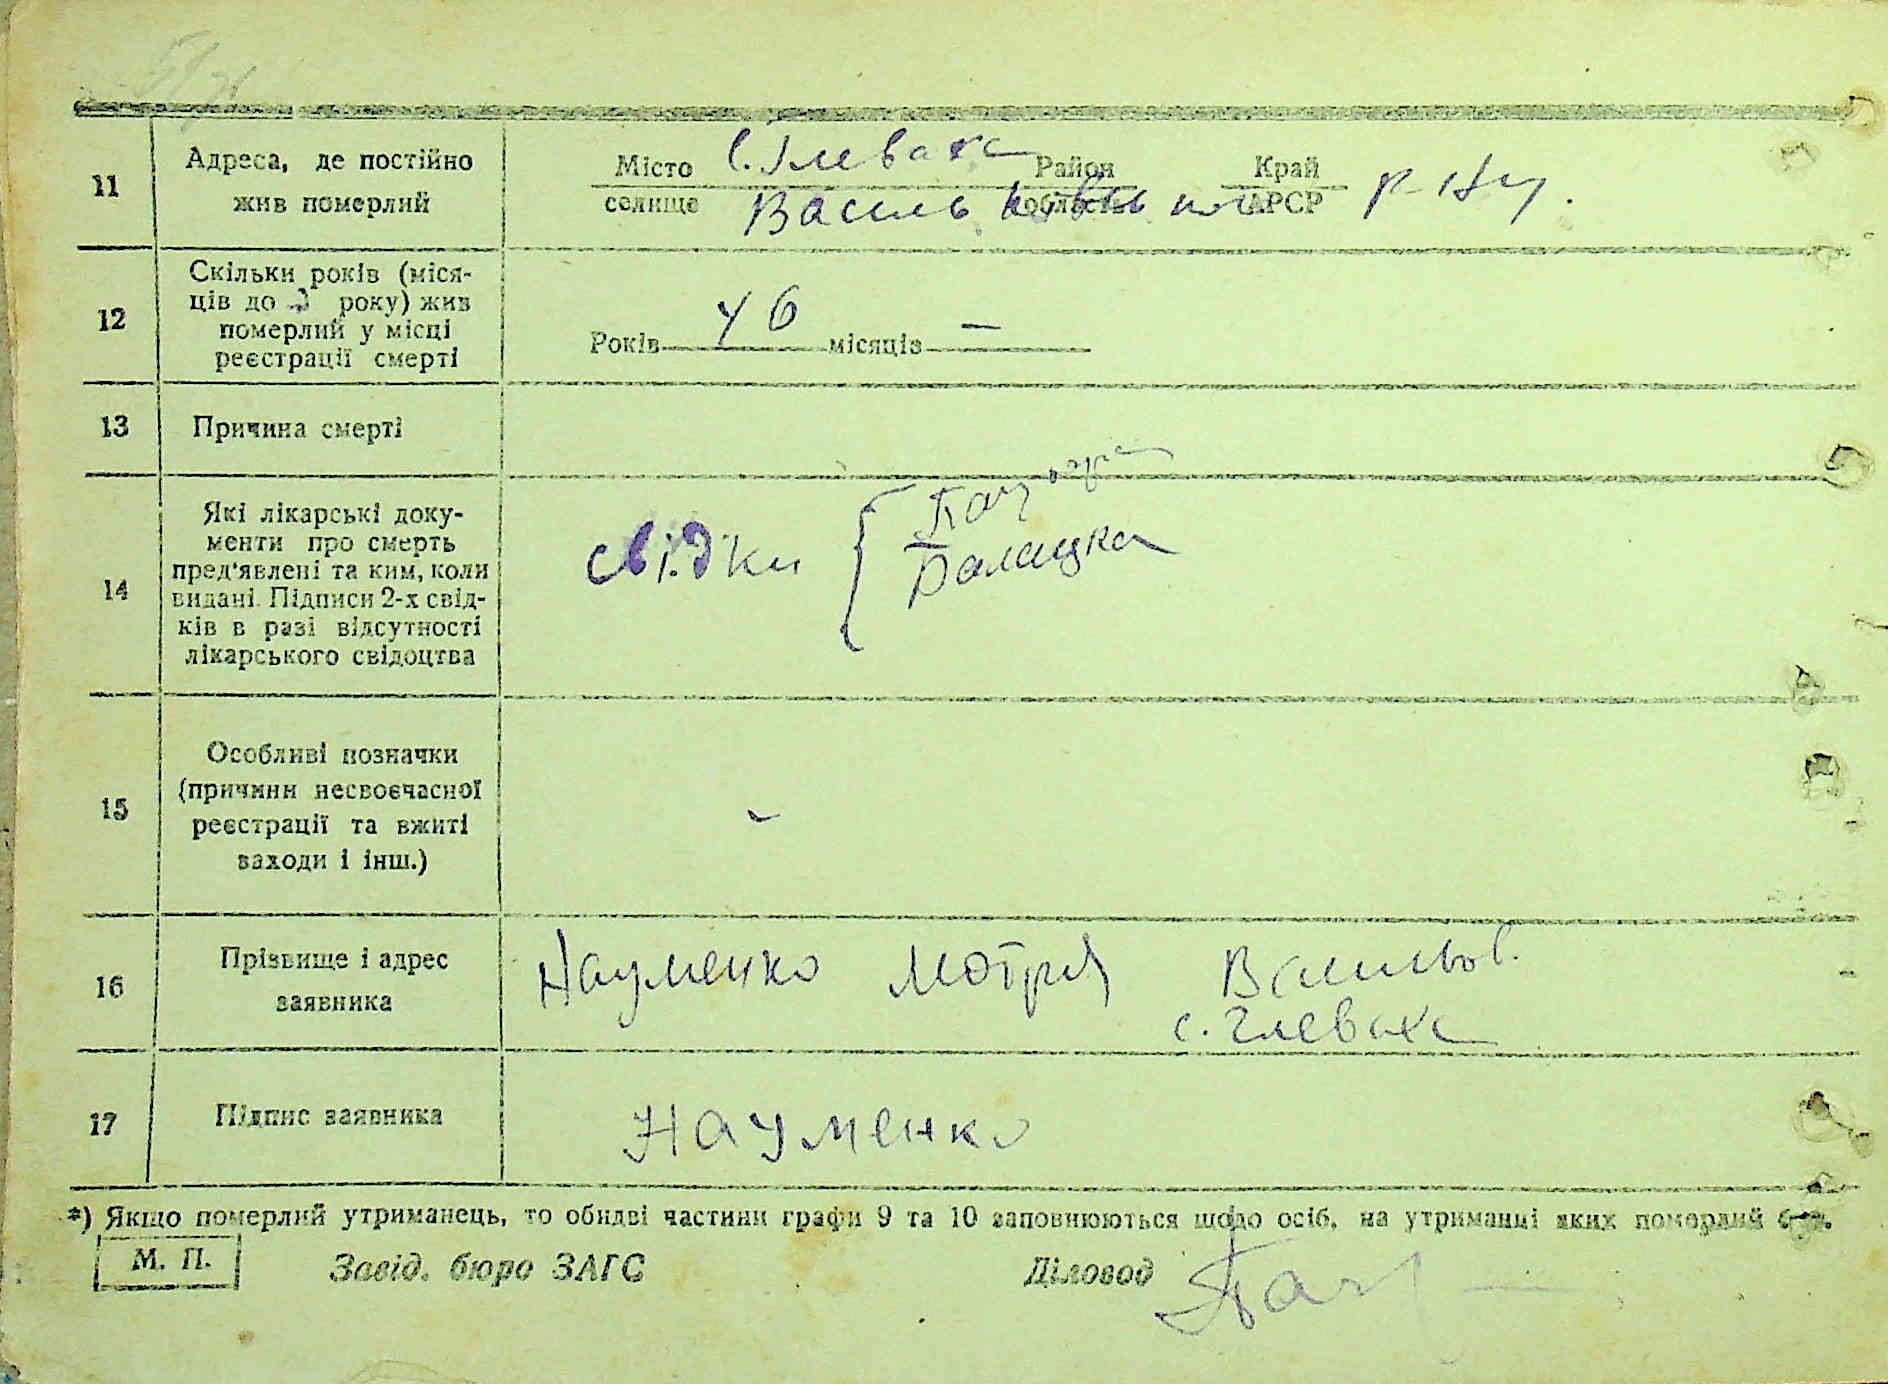 11
Адреса, де постійно
жив померлий
Місто с. Глеваха Район Край
селище Васильківськ область АРСР р-ну.
12
Скільки років (міся-
ців до року) жив
померлий у місці
реєстрації смерті
Років 46 місяців —
13
Причина смерті
14
Які лікарські доку-
менти про смерть
пред'явлені та ким, коли
видані. Підписи 2-х свід-
ків в разі відсутності
лікарського свідоцтва
свідки {
Балацка
15
Особливі позначки
(причини несвоєчасної
реєстрації та вжиті
заходи і інш.)
-
16
Прізвище і адрес
заявника
Науменко Мотря Васильов.
с. Глеваха
17
Підпис заявника
Науменко
*) Якщо померлий утриманець, то обидві частини графи 9 та 10 заповнюються щодо осіб, на утриманні яких померлий був.
М. П.
Завід. бюро ЗАГС
Діловод